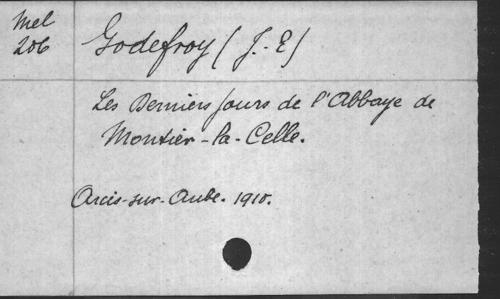 Mel
206
Godefroy (J.-E)
Les Derniers Jours de l'Abbaye de
Montier-la-Celle.
Arcis-sur-Aube. 1910.